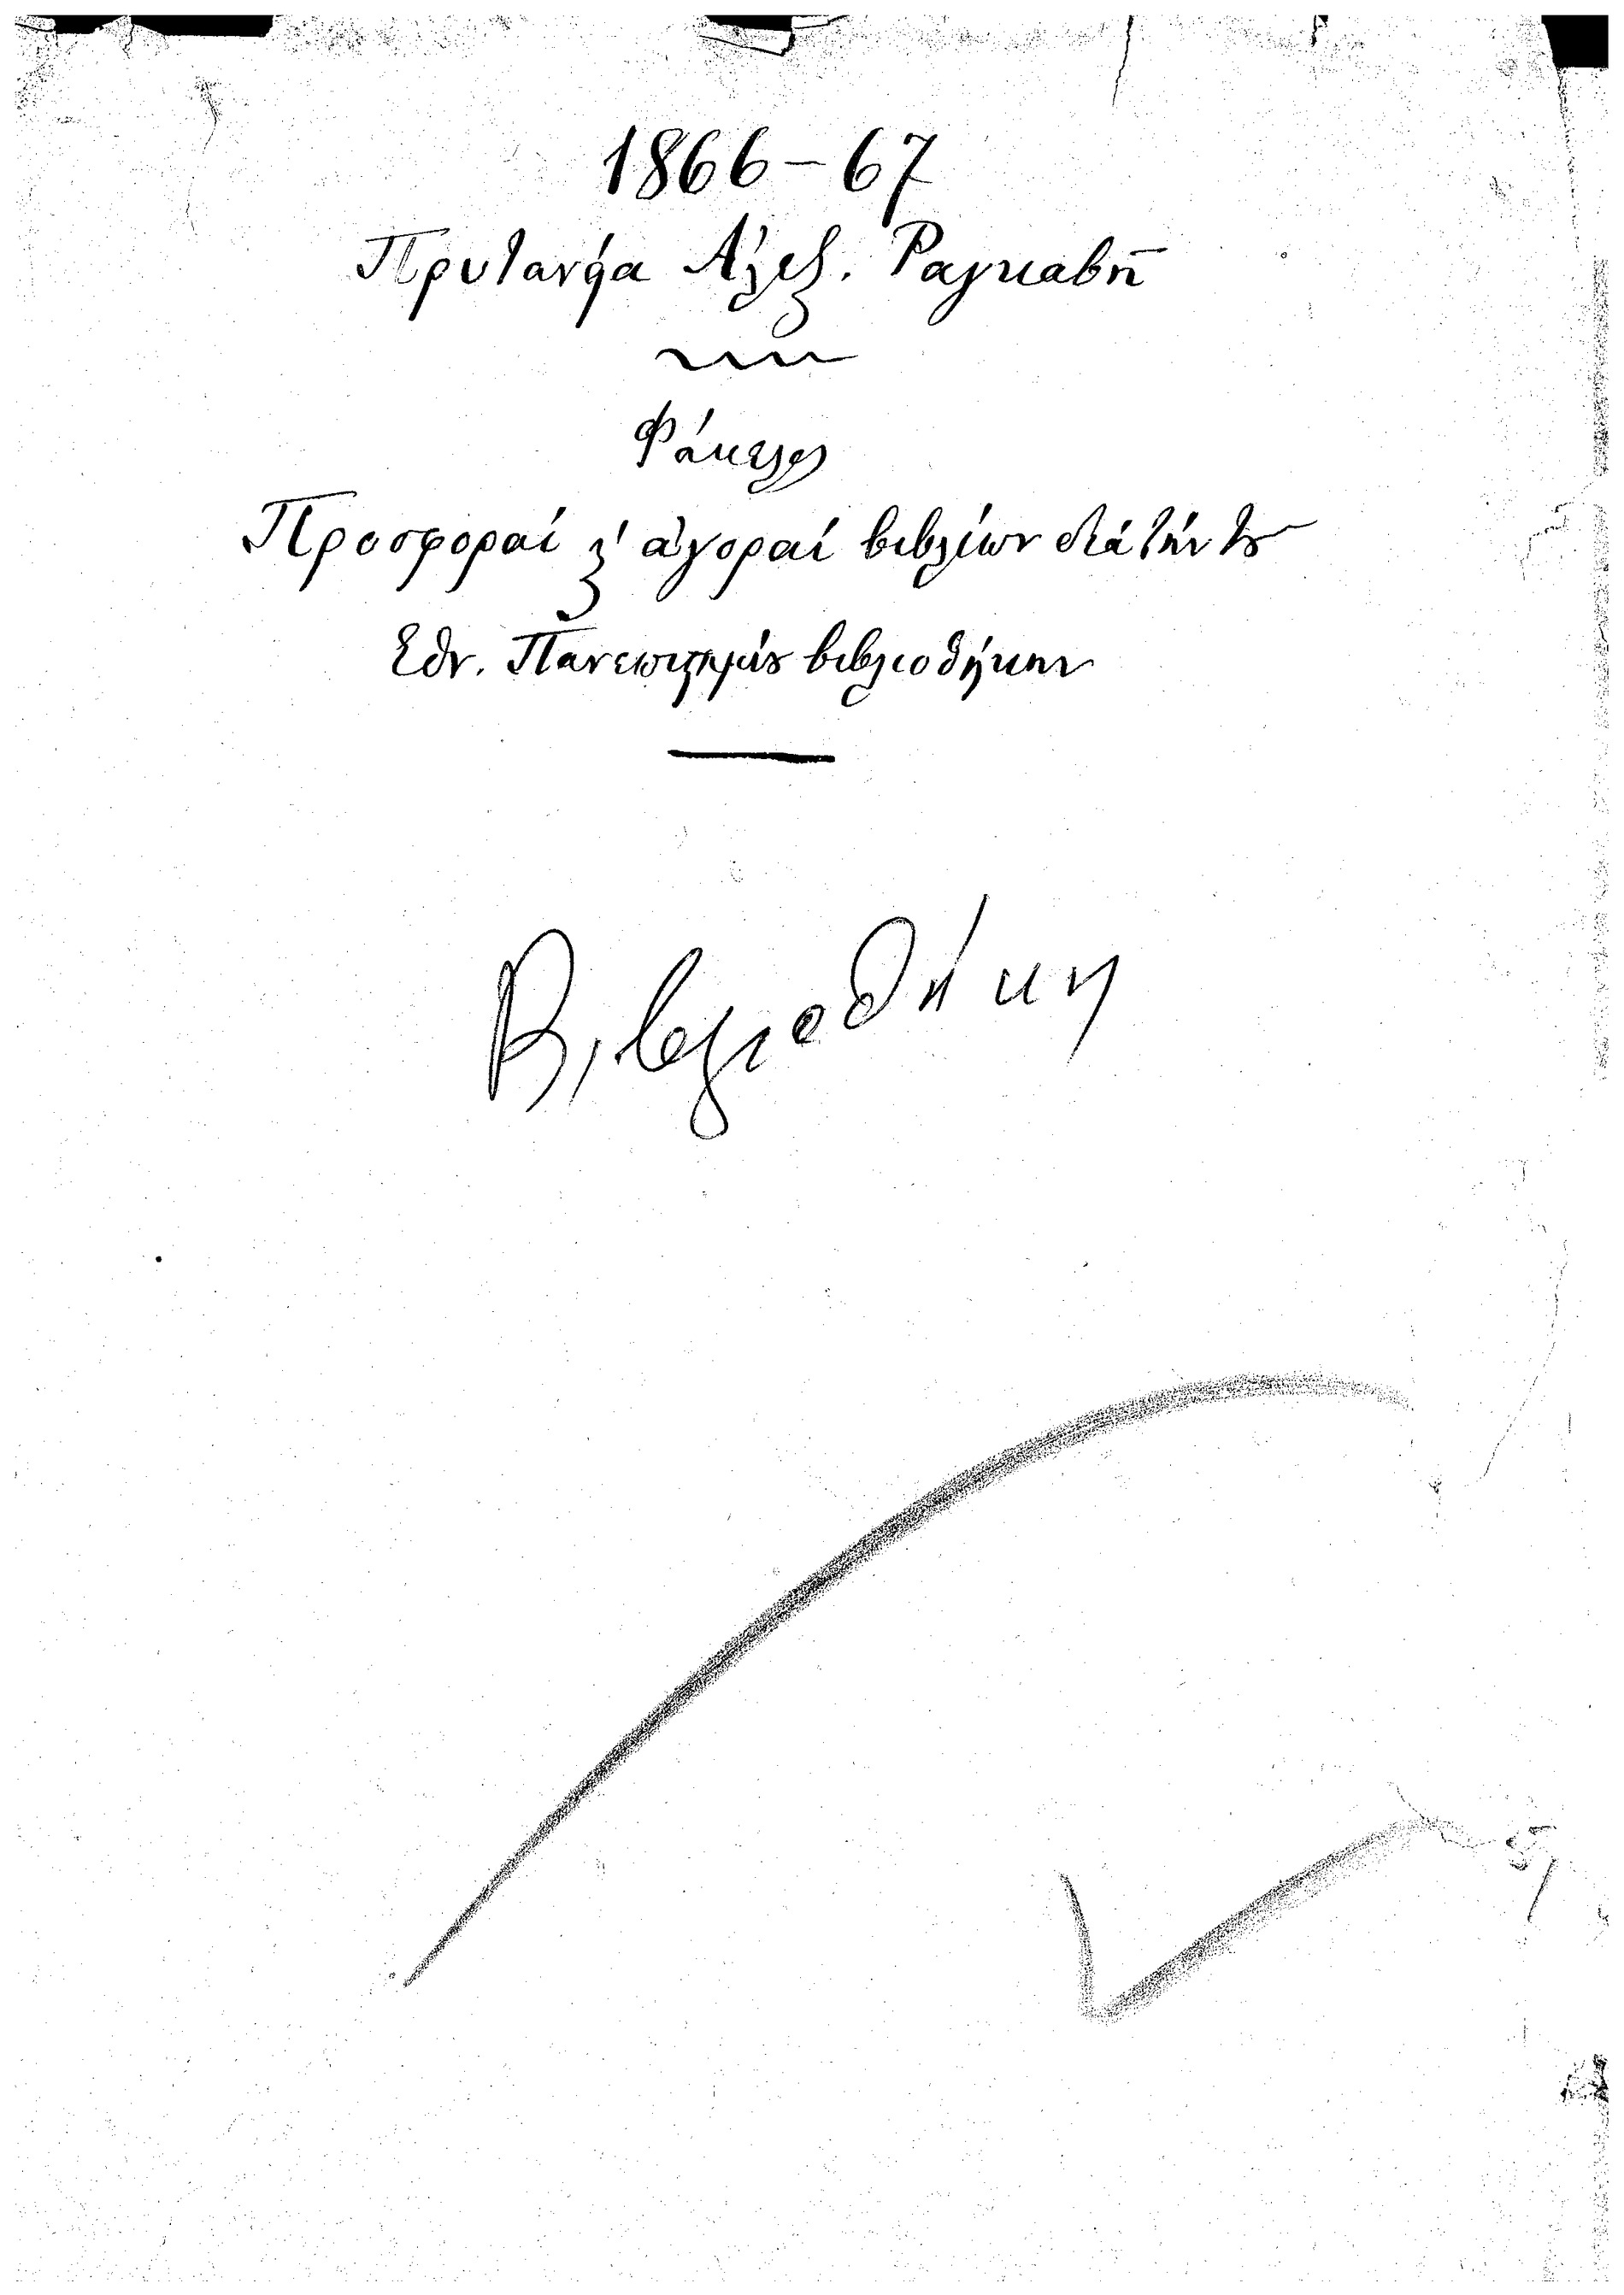 1866-67
Πρυτανεία Ἀλεξ. Ραγκαβῆ
Φάκελος
Προσφοραί ϗ ἀγοραί βιβλίων διά τήν τȣ
Ἐθν. Πανεπιστημίȣ βιβλιοθήκην
Βιβλιοθήκη